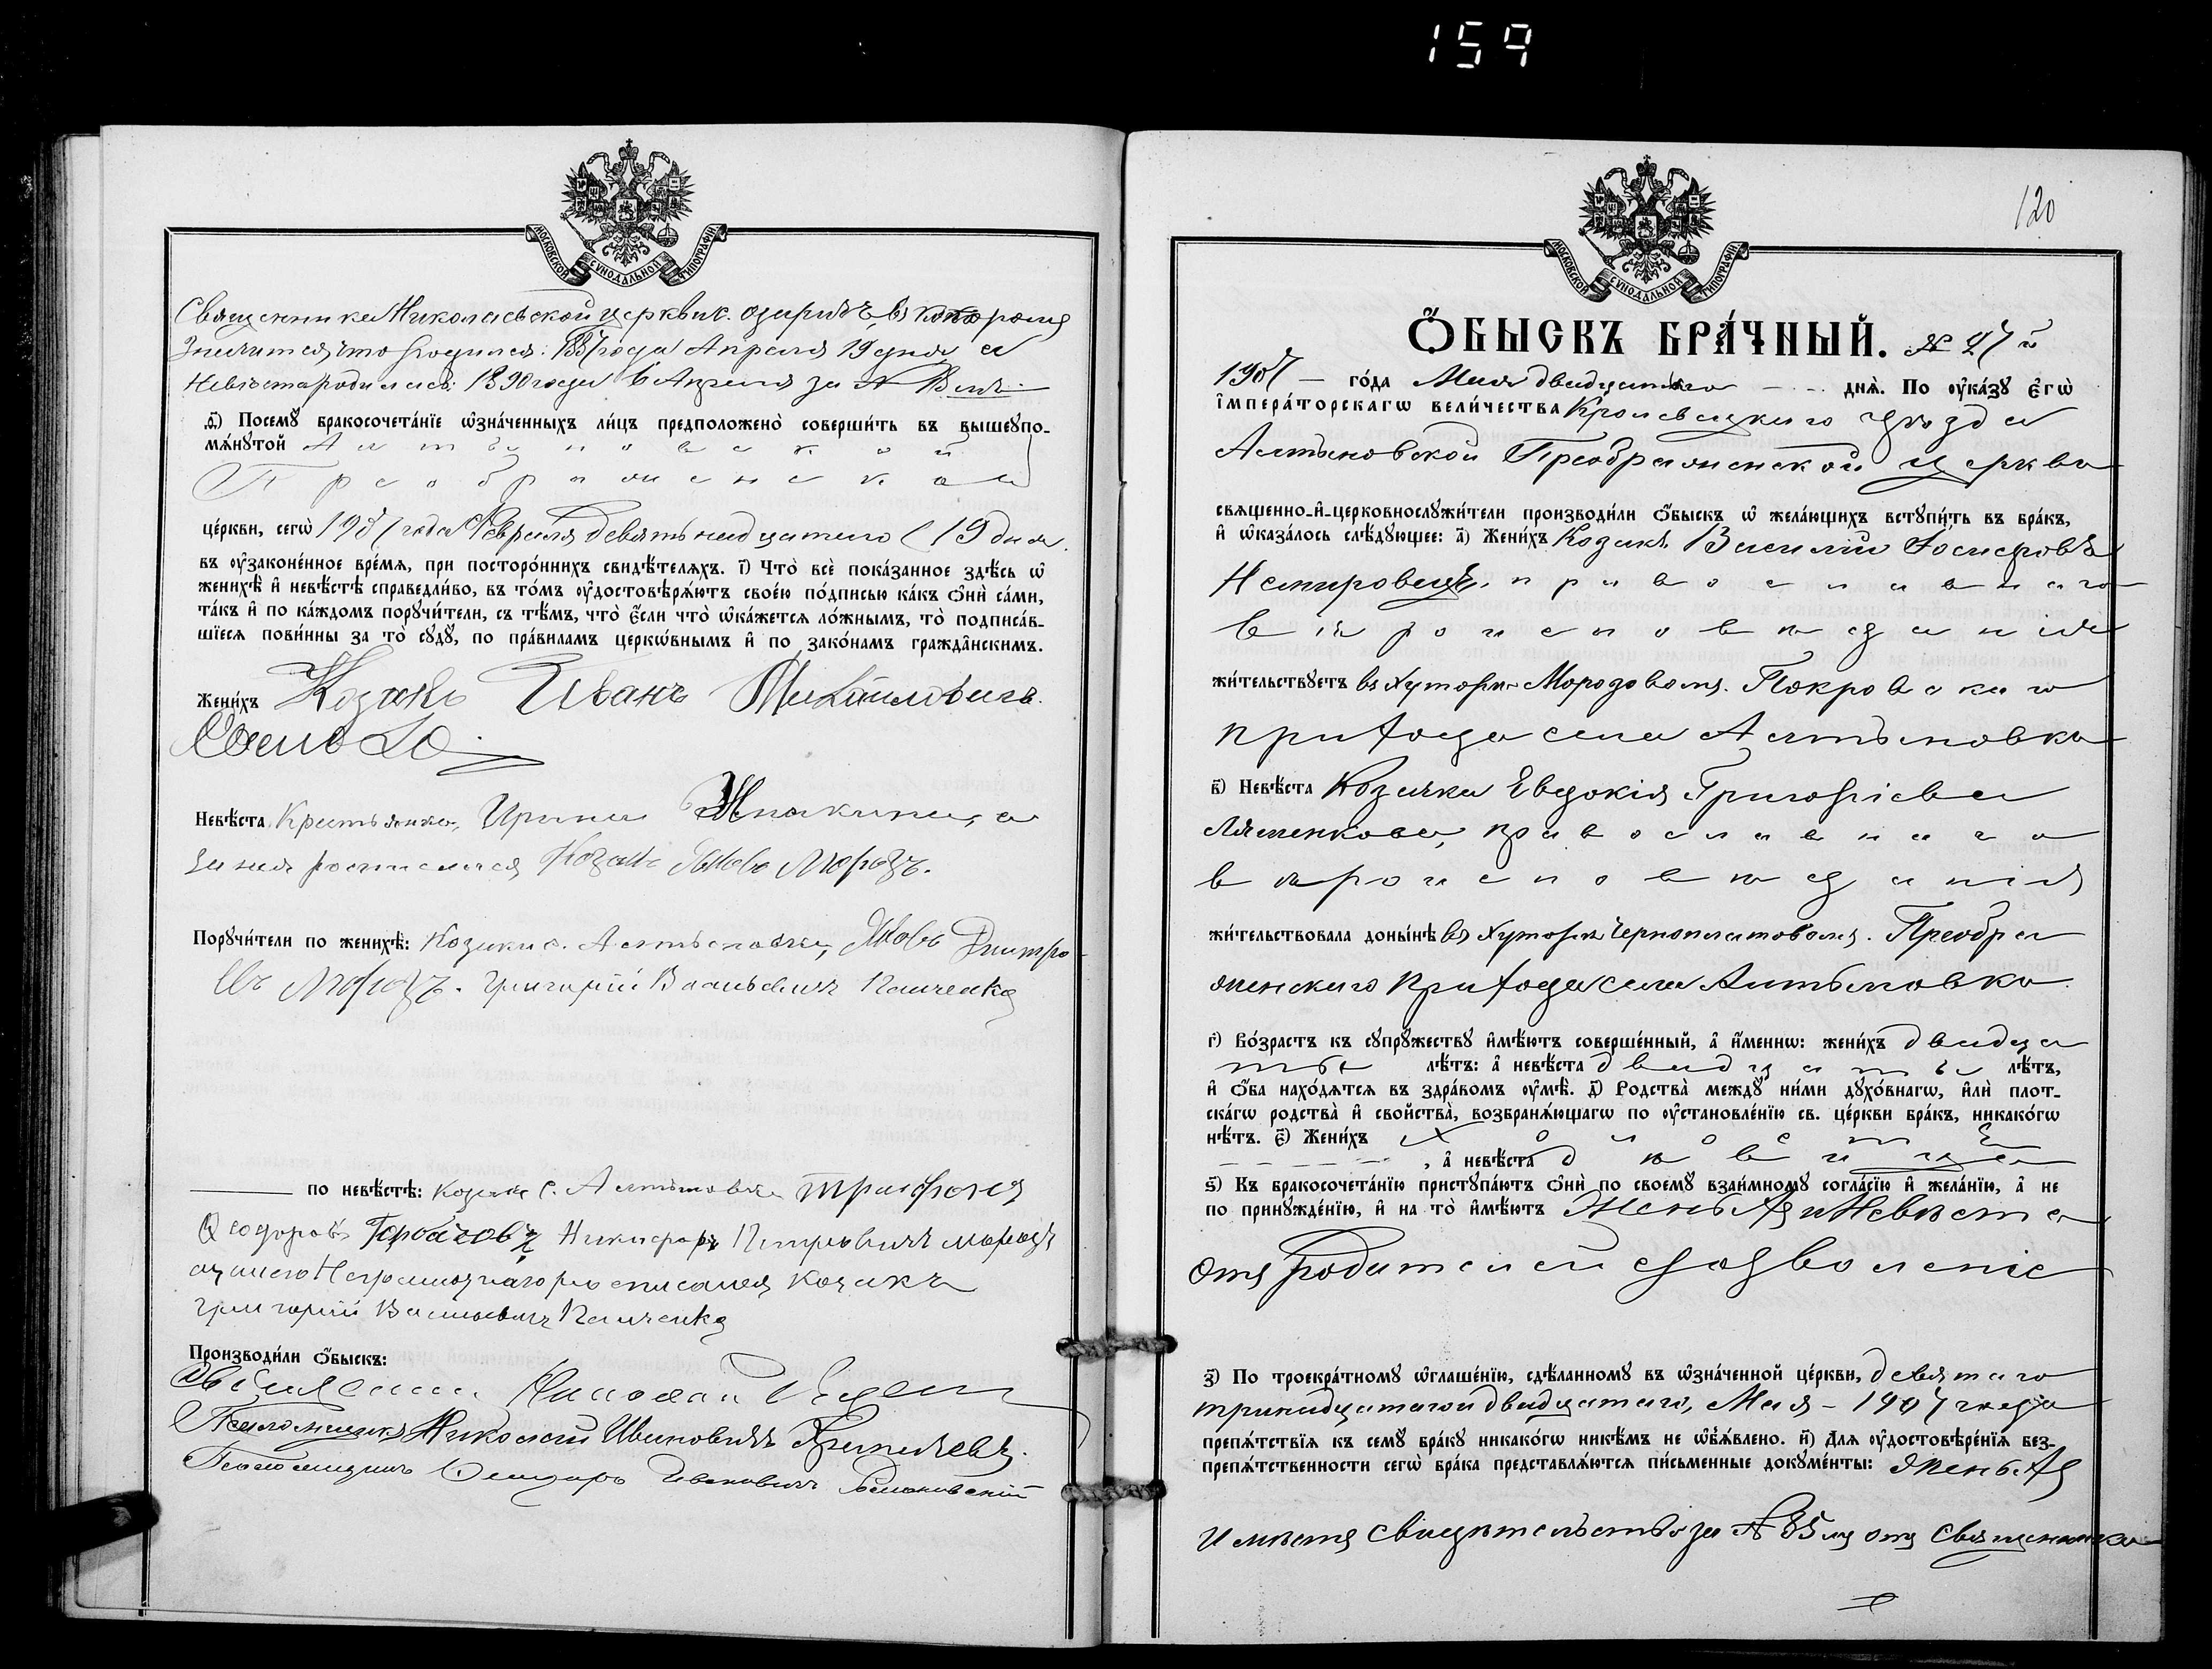 159
МОСКОВСКОЙ СѴНОДАЛЬНОЙ ТИПОГРАФІИ
Священника Николаевской церкви с. въ которомъ
значится что родился: 1887 года Апреля 19 дня, а
невѣста родилась: 1890 года 6 Апреля за №
ѳ҃) Посемꙋ бракосочета́нїе ѡ҆зна́ченныхъ ли́цъ предположено̀ соверши́ть въ вышеꙋпо-
мѧ́нꙋтой Алтыновской
Преображенской
це́ркви, сегѡ̀ 1907 года Февраля девятнадцатаго (19 дня
въ ᲂу҆зако́ненное вре́мя, при посторо́ннихъ свидѣ́телѧхъ. і҃) Что̀ всѐ пока́занное здѣ́сь ѡ҆
женихѣ̀ и҆ невѣ́стѣ справедли́во, въ то́мъ ᲂу҆достовѣрѧ́ютъ свое́ю по́дписью ка́къ ѻ҆нѝ са́ми,
та́къ и҆ по ка́ждомъ порꙋчи́тели, съ тѣ́мъ, что̀ є҆́сли что̀ ѡ҆ка́жетсѧ ло́жнымъ, то̀ подписа́в-
шїесѧ пови́нны за то̀ сꙋдꙋ̀, по пра́виламъ церкѡ́внымъ и҆ по зако́намъ гражда̑нскимъ.
Жени́хъ Козакъ Иванъ Михайловичъ
Невѣ́ста Крестьянка, Ирина
за нея росписался Козакъ Яковъ Морозъ.
Порꙋчи́тели по женихѣ̀: Козаки с. Алтыновки, Яковъ Дмитро
въ Морозъ. Григорій Васильевичъ Панченко
по невѣ́стѣ: козаки с. Алтыновки Трифонъ
Ѳеодоровъ Горбачовъ Никифоръ Петровичъ Морозъ
а за него Неграмотнаго росписался козакъ
Григорій Васильевичъ Панченко
Производи́ли ѻ҆́быскъ:
Священникъ Николай
Псаломщикъ Николай Ивановичъ
Псаломщикъ Ивановичъ
120
МОСКОВСКОЙ СѴНОДАЛЬНОЙ ТИПОГРАФІИ
Ѻ҆́БЫСКЪ БРА́ЧНЫЙ. № 27й
1907 – го́да Мая двадцатаго – днѧ̀. По ᲂу҆ка́зꙋ є҆гѡ̀
і҆мпера́торскагѡ вели́чества Кролевецкаго уѣзда
Алтыновской Преображенской церкви
свѧщенно-и҆-церковнослꙋжи́тели производи́ли ѻ҆́быскъ ѡ҆ жела́ющихъ встꙋпи́ть въ бра́къ,
и҆ ѡ҆каза́лось слѣ́дꙋющее: а҃) Жени́хъ Козакъ Василій Іосифовъ
Немировецъ, православнаго
вѣроисповѣданія
жи́тельствꙋетъ въ Хуторѣ Морозовомъ. Покровскаго
прихода села Алтыновки
в҃) Невѣ́ста Козачка Евдокія Григоріева
Ляшенкова, православнаго
вѣроисповѣданія
жи́тельствовала доны́нѣ въ Хуторѣ Черноплатовомъ. Преобра
женскаго прихода села Алтыновки.
г҃) Во́зрастъ къ сꙋпрꙋ́жествꙋ и҆мѣ́ютъ соверше́нный, а҆ и҆́меннѡ: жени́хъ двадца
ть лѣ́тъ: а҆ невѣ́ста двадцать лѣ́тъ,
и҆ ѻ҆́ба нахо́дѧтсѧ въ здра́вомъ ᲂу҆мѣ̀. д҃) Родства̀ междꙋ̀ ни́ми дꙋхо́внагѡ, и҆лѝ плот-
ска́гѡ родства̀ и҆ свойства̀, возбранѧ́ющагѡ по ᲂу҆становле́нїю св. це́ркви бра́къ, никако́гѡ
нѣ́тъ. є҃) Жени́хъ холостъ
, а҆ невѣ́ста дѣвица
ѕ҃) Къ бракосочета́нїю пристꙋпа́ютъ ѻ҆нѝ по своемꙋ̀ взаи́мномꙋ согла́сїю и҆ жела́нїю, а҆ не
по принꙋжде́нїю, и҆ на то̀ и҆мѣ́ютъ Женыхъ и Невѣста
отъ родителей дозволеніе
з҃) По троекра́тномꙋ ѡ҆глаше́нїю, сдѣ́ланномꙋ въ ѡ҆зна́ченной це́ркви, девятаго
тринадцатаго и двадцатаго, Мая – 1907 года
препѧ́тствїѧ къ семꙋ̀ бра́кꙋ никако́гѡ никѣ́мъ не ѡ҆б̾ѧ́влено. и҃) Для ᲂу҆достовѣре́нїѧ без-
препѧ́тственности сегѡ̀ бра́ка представлѧ́ютсѧ пи́сьменные докꙋме́нты: женыхъ
имѣетъ свидѣтельство за № 85 отъ священника